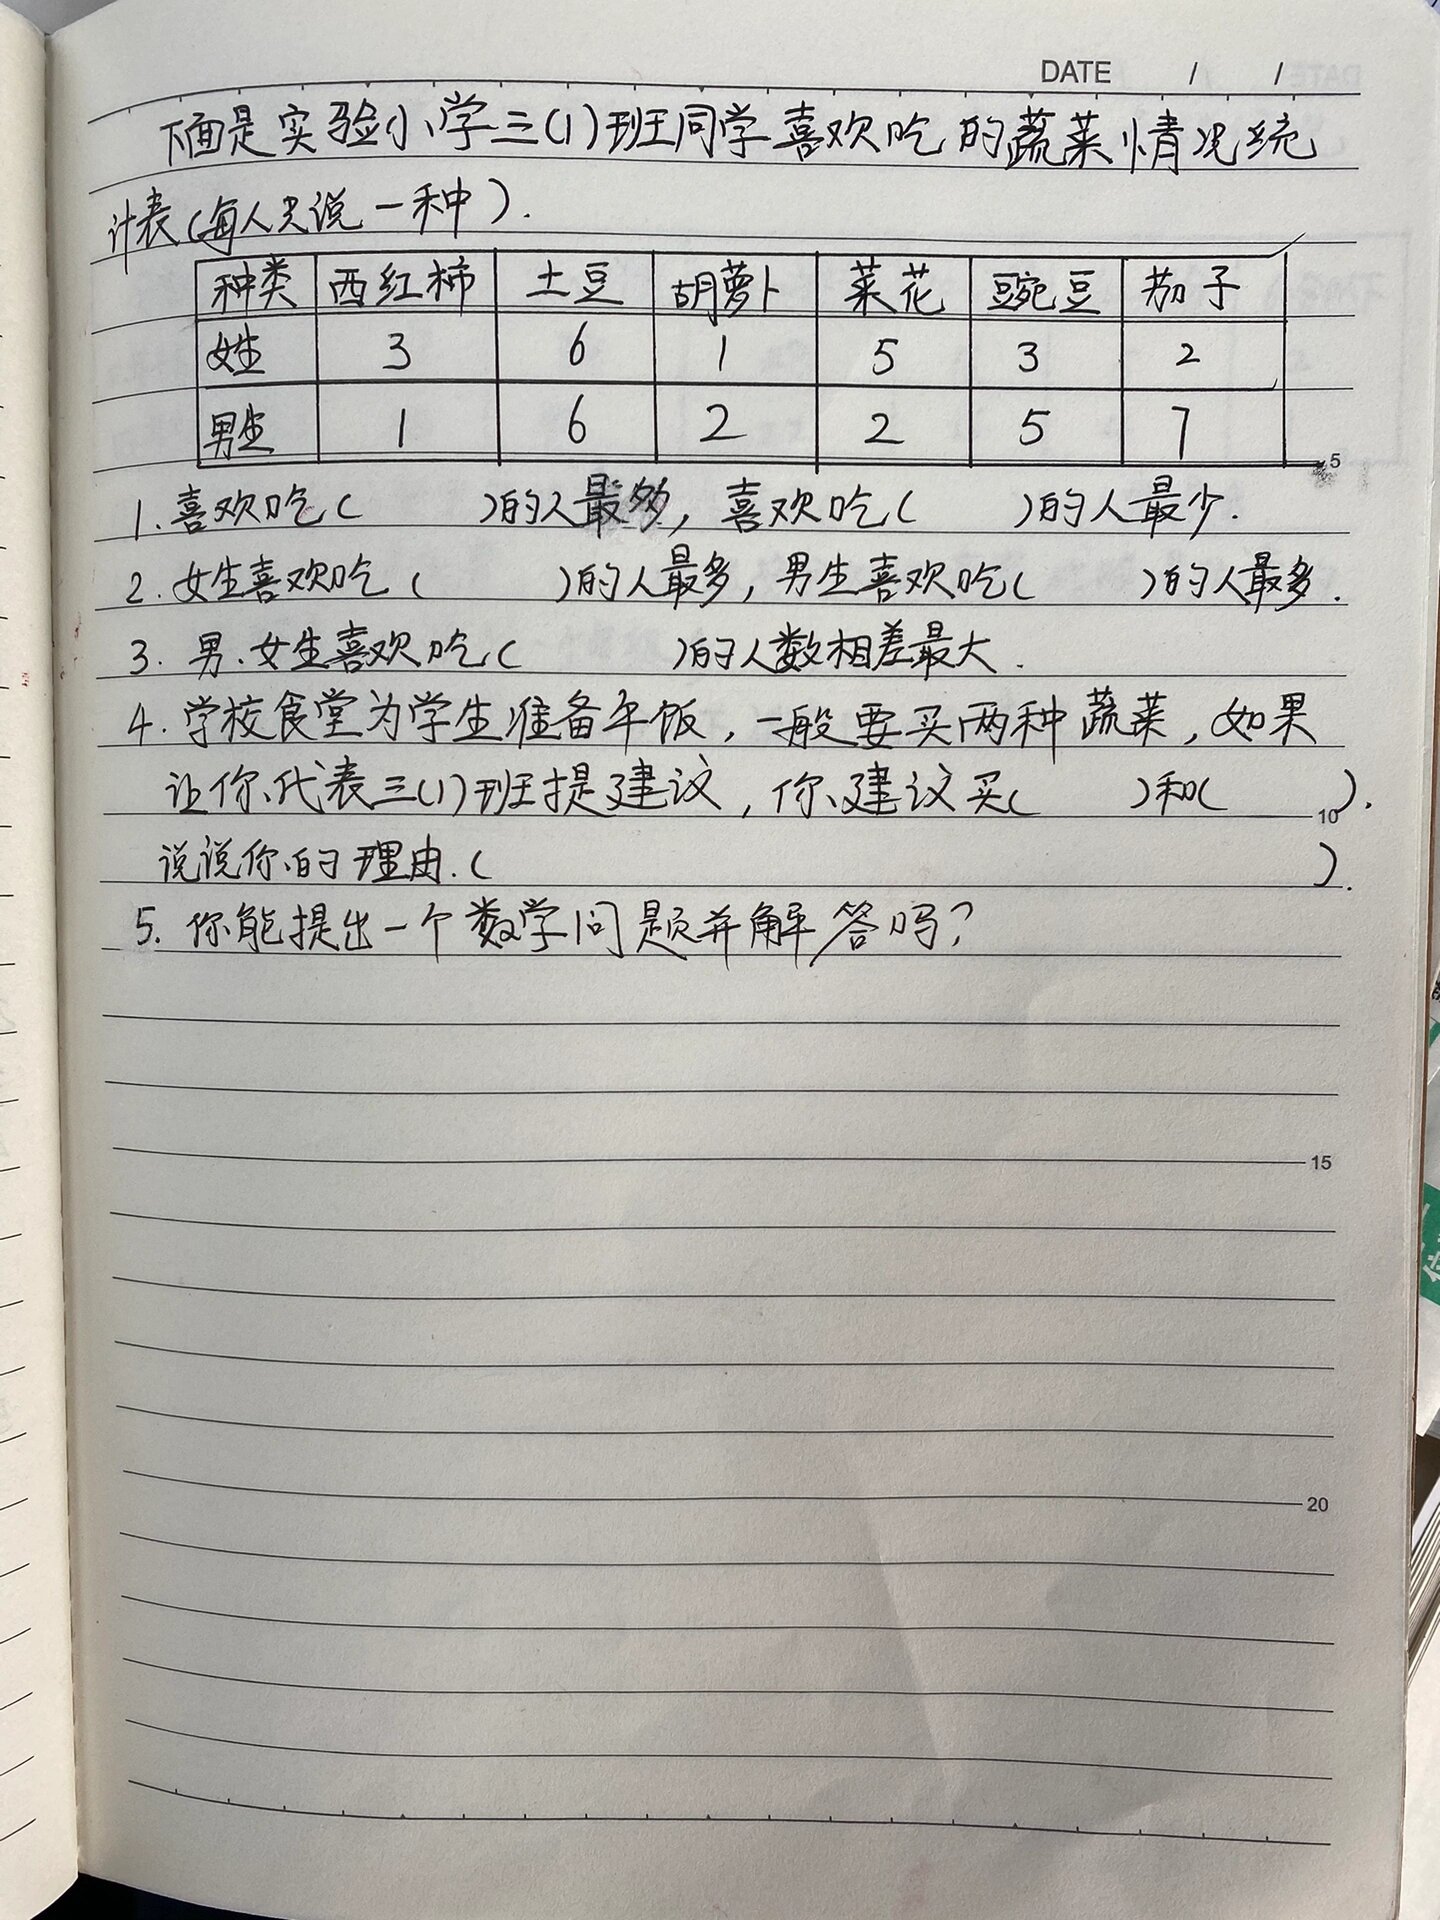 DATE / /
下面是实验小学三(1)班同学喜欢吃的蔬菜情况统
计表(每人只说一种).
种类 西红柿 土豆 胡萝卜 菜花 豌豆 茄子
女生 3 6 1 5 3 2
男生 1 6 2 2 5 7
5
1.喜欢吃( )的人最多,喜欢吃( )的人最少.
2.女生喜欢吃( )的人最多,男生喜欢吃( )的人最多.
3.男、女生喜欢吃( )的人数相差最大.
4.学校食堂为学生准备午饭,一般要买两种蔬菜,如果
让你代表三(1)班提建议,你建议买( )和( ).
10
说说你的理由.( ).
5.你能提出一个数学问题并解答吗?
15
20